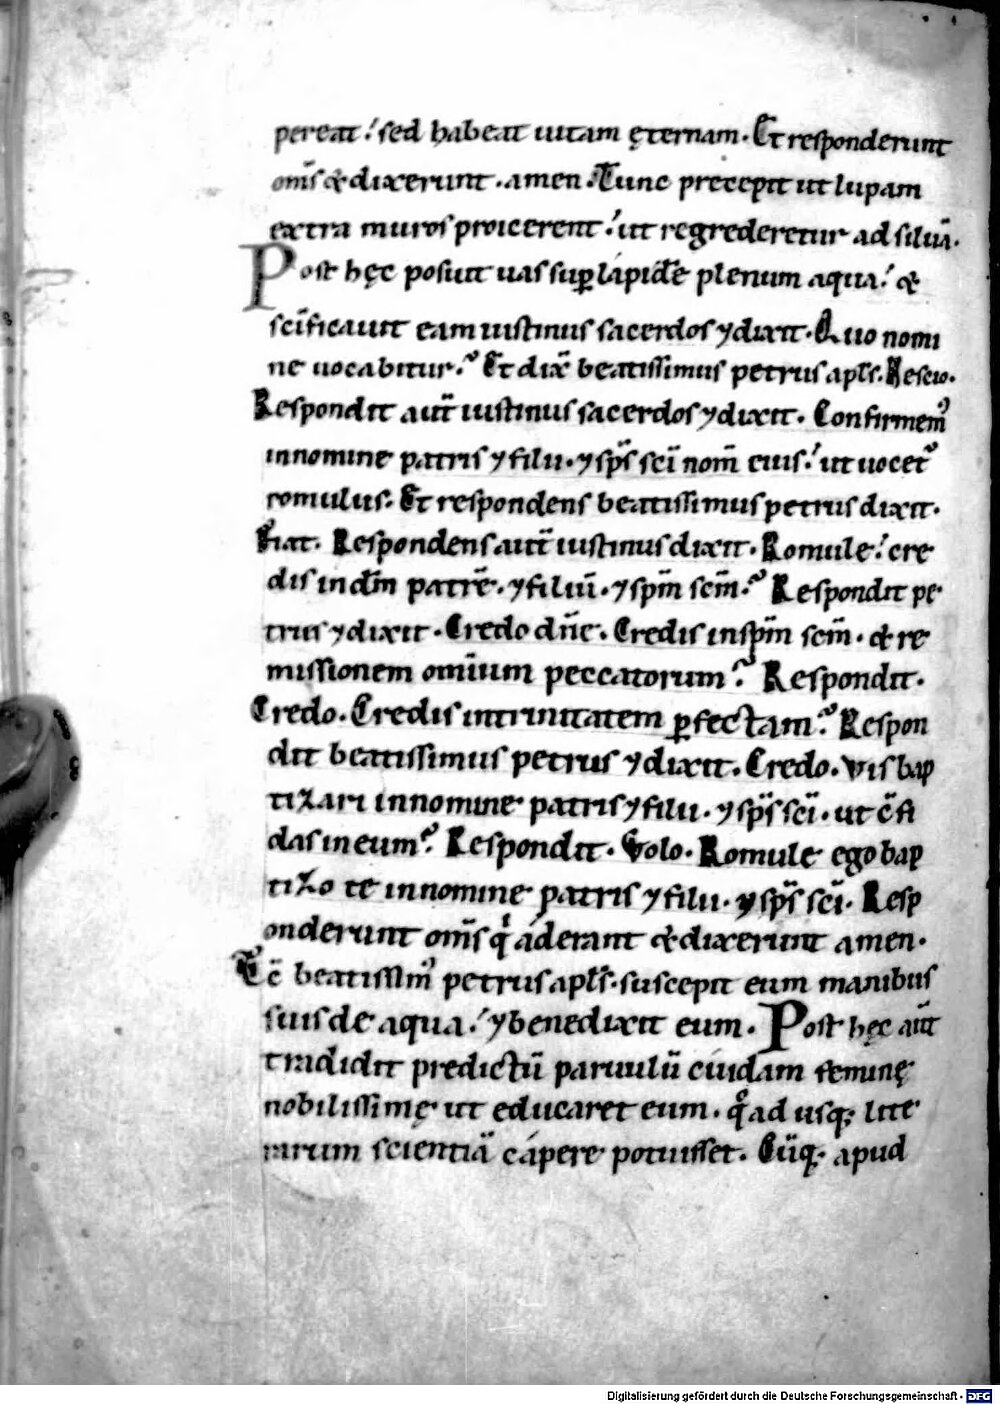 pereat. sed habeat uitam ęternam. Et responderunt
om̄s & dixerunt. amen. Tunc precepit ut lupam
extra muros proicerent. ut regrederetur ad siluā.
Post hęc posuit uas sup lapidē plenum aqua. &
sc̄ificauit eam iustinus sacerdos ⁊ dixit. Quo nomi
ne uocabitur. Et dix̄ beatissimus petrus apl̄s. Nescio.
Respondit aut̄ iustinus sacerdos ⁊ dixit. Confirmem᾽
in nomine patris ⁊ filii. ⁊ sp̄s sc̄i nom̄ eius. ut uocet᾽
romulus. Et respondens beatissimus petrus dixit.
Fiat. Respondens aut̄ iustinus dixit. Romule. cre
dis in dm̄ patrē. ⁊ filiū. ⁊ spm̄ scm̄. Respondit pe
trus ⁊ dixit. Credo dn̄e. Credis in spm̄ scm̄. & re
missionem omīum peccatorum. Respondit.
Credo. Credis in trinitatem ꝑfectam. Respon
dit beatissimus petrus ⁊ dixit. Credo. vis bap
tizari in nomine patris ⁊ filii. ⁊ sp̄s sc̄i. ut c̄fi
das in eum. Respondit. Volo. Romule ego bap
tizo te in nomine patris ⁊ filii. ⁊ sp̄s sc̄i. Resp
onderunt om̄s qͥ aderant & dixerunt amen.
Tc̄ beatissim᾽ petrus apl̄s. suscepit eum manibus
suis de aqua. ⁊ benedixit eum. Post hęc aūt
tradidit predictū paruulū cuidam feminę
nobilissimę ut educaret eum. qͦ ad usq; litte
rarum scientiā capere potuisset. Cūq; apud
Digitalisierung gefördert durch die Deutsche Forschungsgemeinschaft - DFG